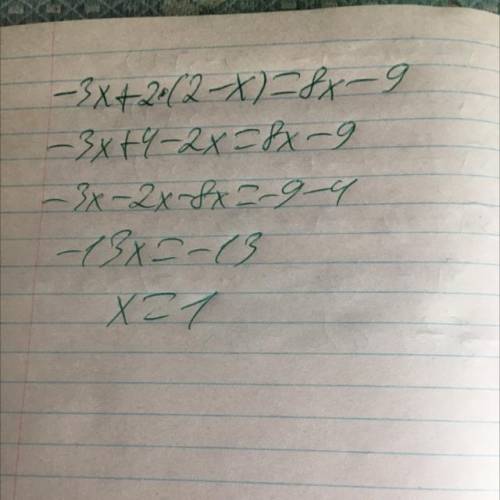 -3x+2·(2-x)=8x-9
-3x+4-2x=8x-9
-3x-2x-8x=-9-4
-13x=-13
x=1